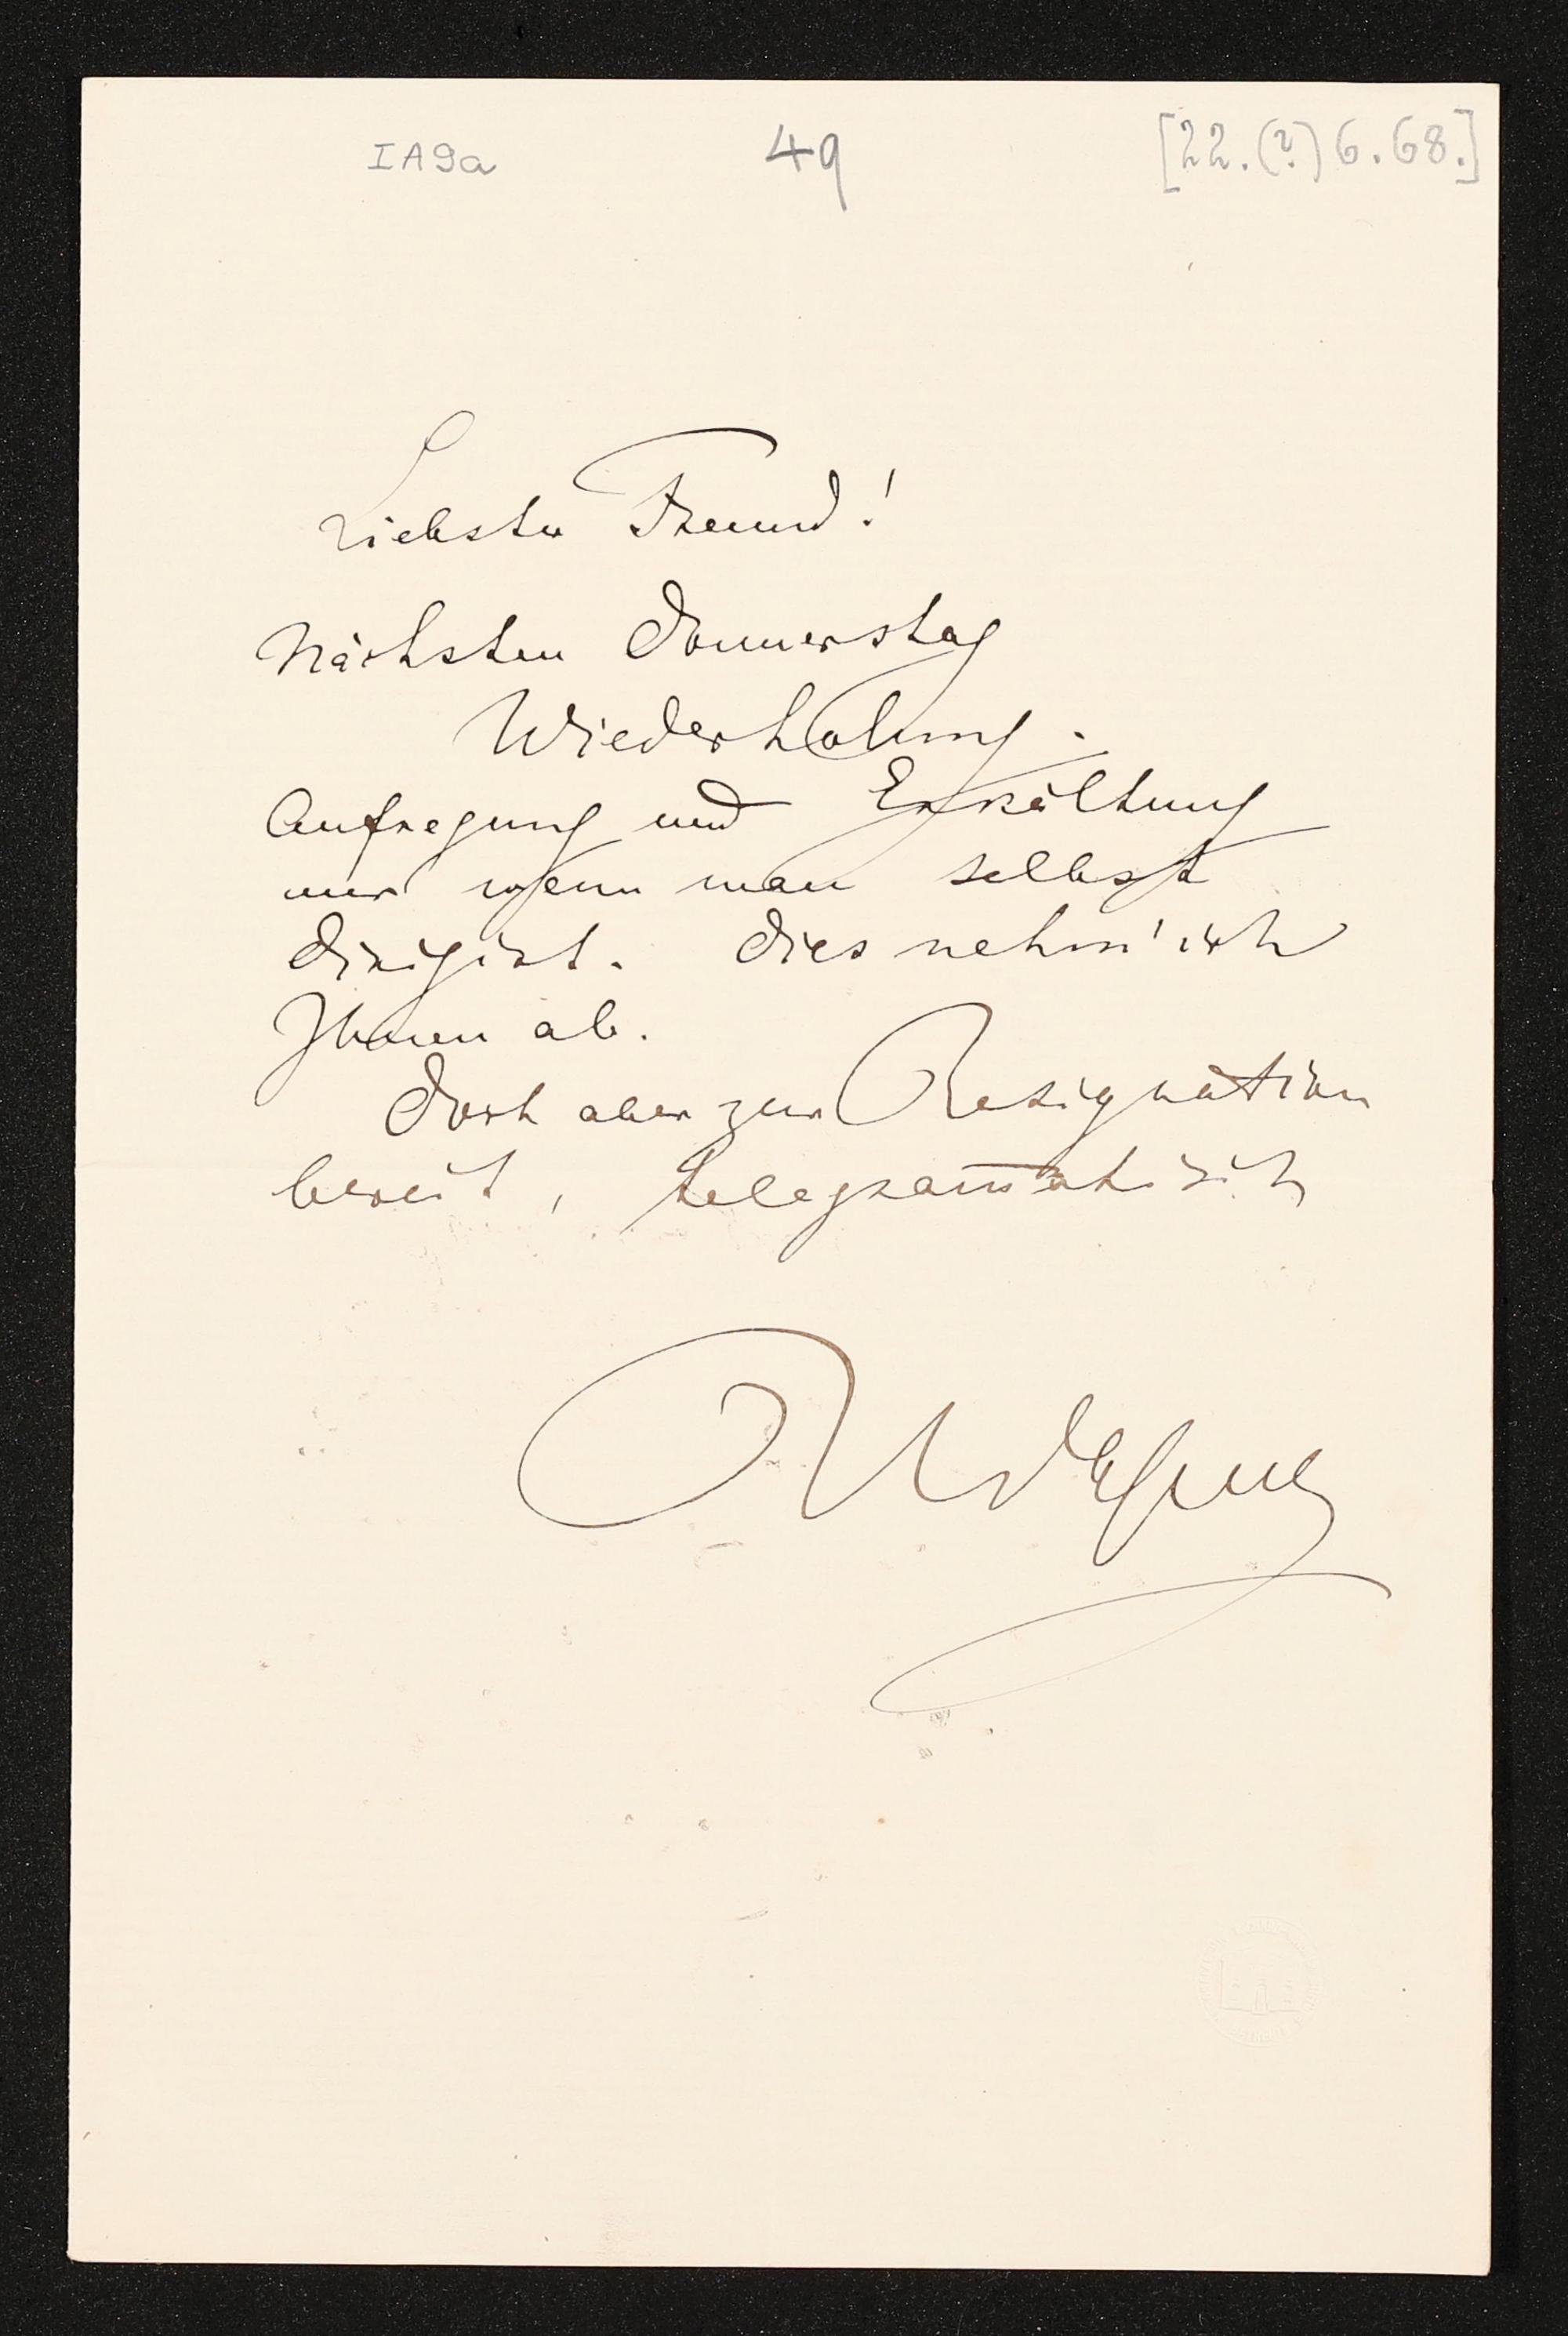 IA9a 49 [22.(?)6.68.]
Liebster Freund!
Nächsten Donnerstag
Wiederholung.
Aufregung und Erkältung
nur wenn man selbst
dirigirt. Dies nehm' ich
Ihnen ab.
Doch aber zur Resignation
bereit, telegram̅atisch
RWagner